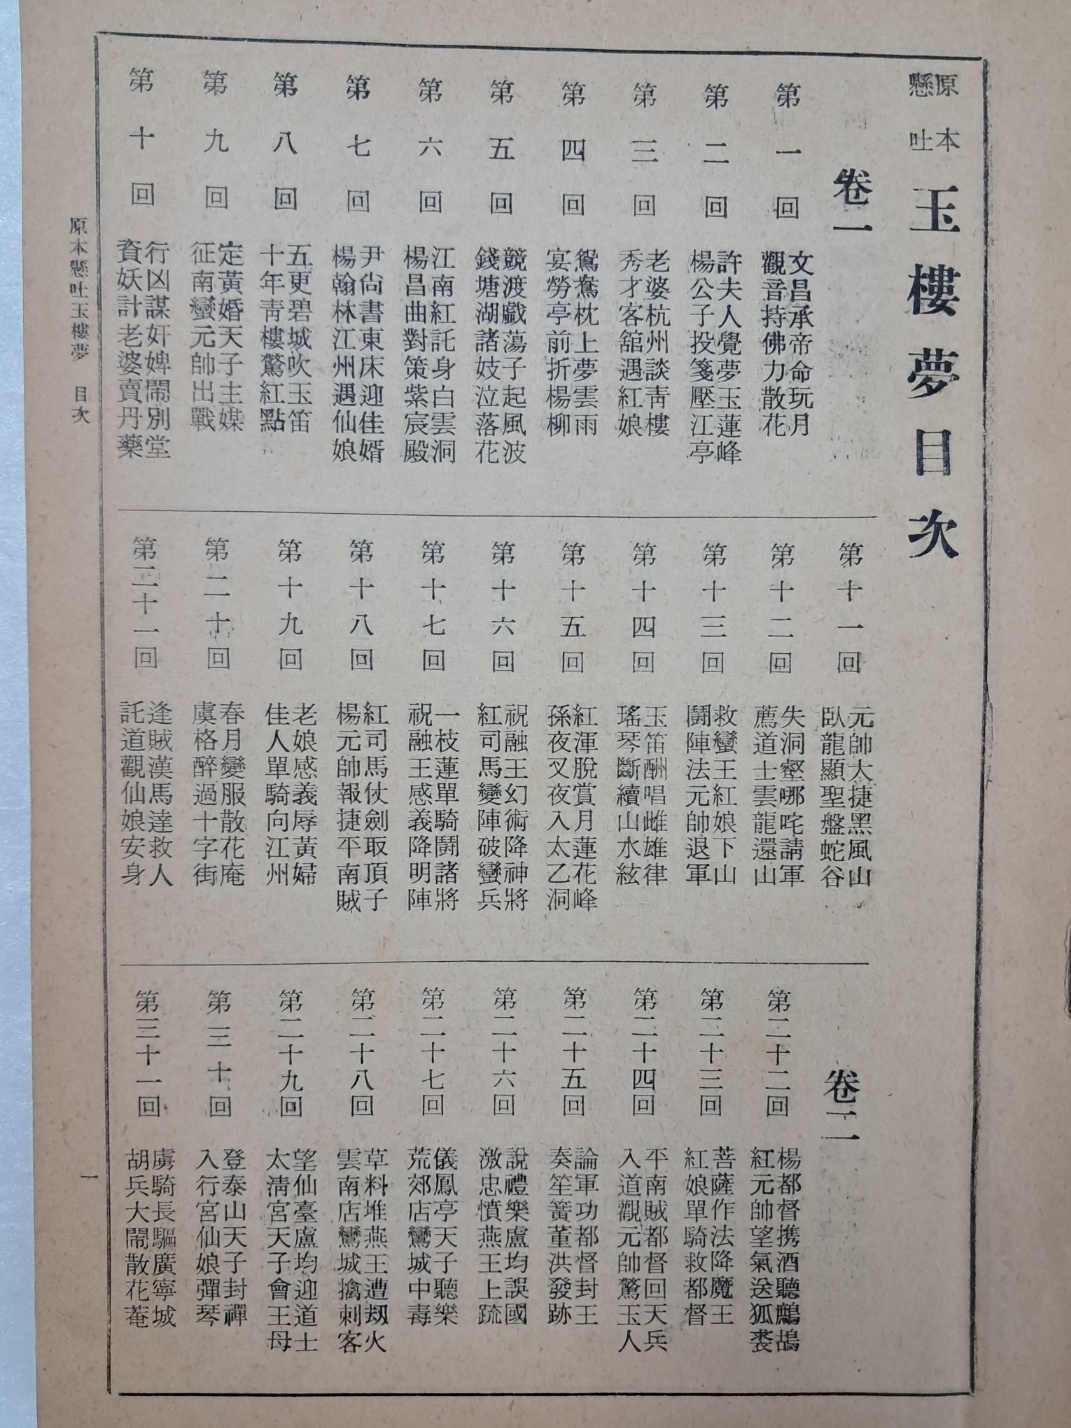 原本
懸吐
玉樓夢目次
卷一
第一回
文昌承帝命玩月
觀音持佛力散花
第二回
許夫人覺夢玉蓮峰
楊公子投箋壓江亭
第三回
老婆杭州談靑樓
秀才客舘遇紅娘
第四回
鴛鴦枕上夢雲雨
宴勞亭前折楊柳
第五回
競渡戱蕩子起風波
錢塘湖諸妓泣落花
第六回
江南紅託身白雲洞
楊昌曲對策紫宸殿
第七回
尹尙書東床迎佳婿
楊翰林江州遇仙娘
第八回
五更碧城吹玉笛
十年靑樓驚紅點
第九回
定黃婚天子主媒
征南蠻元帥出戰
第十回
行凶謀奸婢鬧別堂
資妖計老婆賣丹藥
第十一回
元帥大捷黑風山
臥龍顯聖盤蛇谷
第十二回
失洞壑哪咤請軍
薦道士雲龍還山
第十三回
救蠻王紅娘下山
鬪陣法元帥退軍
第十四回
玉笛酬唱雌雄律
瑤琴斷續山水絃
第十五回
紅渾脫賞月蓮花峰
孫夜叉夜入太乙洞
第十六回
祝融王幻術降神將
紅司馬變陣破蠻兵
第十七回
一枝蓮單騎鬪諸將
祝融王感義降明陣
第十八回
紅司馬仗劍取頂子
楊元帥報捷平南賊
第十九回
老娘感義辱黃婦
佳人單騎向江州
第二十回
春月變服散花庵
虞格醉過十字街
第二十一回
逢賊漢馬達救人
託道觀仙娘安身
卷二
第二十二回
楊都督携酒聽鷓鴣
紅元帥望氣送狐裘
第二十三回
菩薩作法降魔王
紅娘單騎救都督
第二十四回
平南賊都督回天兵
入道觀元帥驚玉人
第二十五回
論軍功都督封王
奏笙簧董洪發跡
第二十六回
說禮樂盧均誤國
激忠憤燕王上疏
第二十七回
儀鳳亭天子聽樂
荒郊店鸞城中毒
第二十八回
草料堆燕王遭刼火
雲南店鸞城擒刺客
第二十九回
望仙臺盧均迎道士
太淸宮天子會王母
第三十回
登泰山天子封禪
入行宮仙娘彈琴
第三十一回
虜騎長驅廣寧城
胡兵大鬧散花菴
原本懸吐玉樓夢　目次
一